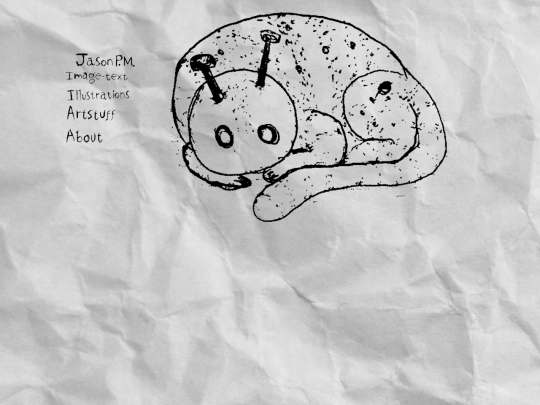 Jason P.M.
Image-text
Illustrations
Artstuff
About